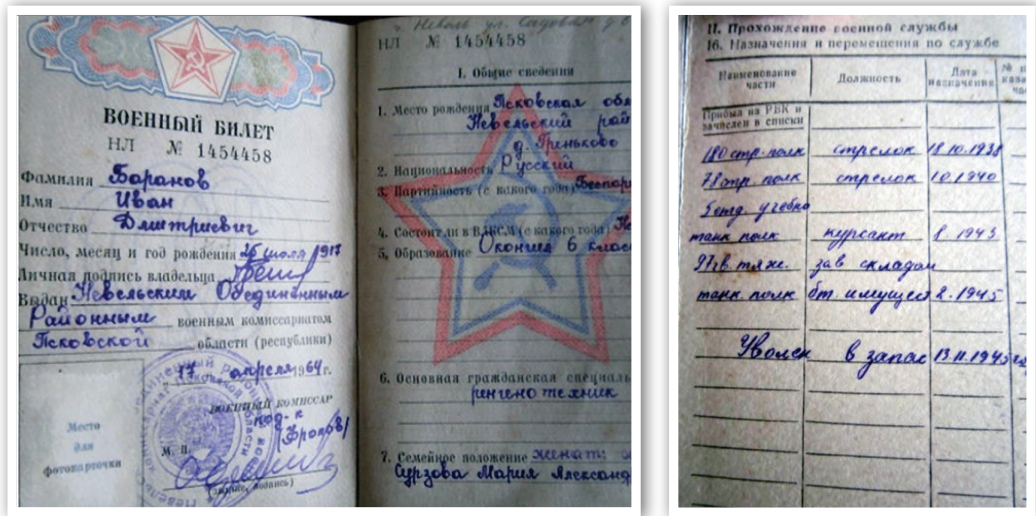 ВОЕННЫЙ БИЛЕТ
НЛ № 1454458
Фамилия Баранов
Имя Иван
Отчество Дмитриевич
Число, месяц и год рождения
Личная подпись владельца
Выдан Невельским Объединённым
Районным военным комиссариатом
Псковской области (республики)
17 апреля 1964 г.
ВОЕННЫЙ КОМИССАР
М. П.
(звание, подпись)
Место
для
фотокарточки
Невель ул. Садовая д.
НЛ № 1454458
I. Общие сведения
1. Место рождения Псковская обл
Невельский рай
д.
2. Национальность Русский
3. Партийность (с какого года) Беспар
4. Состоял ли в ВЛКСМ (с какого года)
5. Образование Окончил 6 класс
6. Основная гражданская специаль
ренгено техник
7. Семейное положение женат:
Сурзова Мария Александ
II. Прохождение военной службы
16. Назначения и перемещения по службе
Наименование части Должность Дата назначения
Прибыл на РВК и
зачислен в списки
180 стр. полк стрелок 18.10.1938
78 стр. полк стрелок 10.1940
5 отд. учебно
танк полк курсант 8.1943
97 гв. тяж. зав складом
танк. полк бт. имущест 8.1945
Уволен в запас 13.11.1945